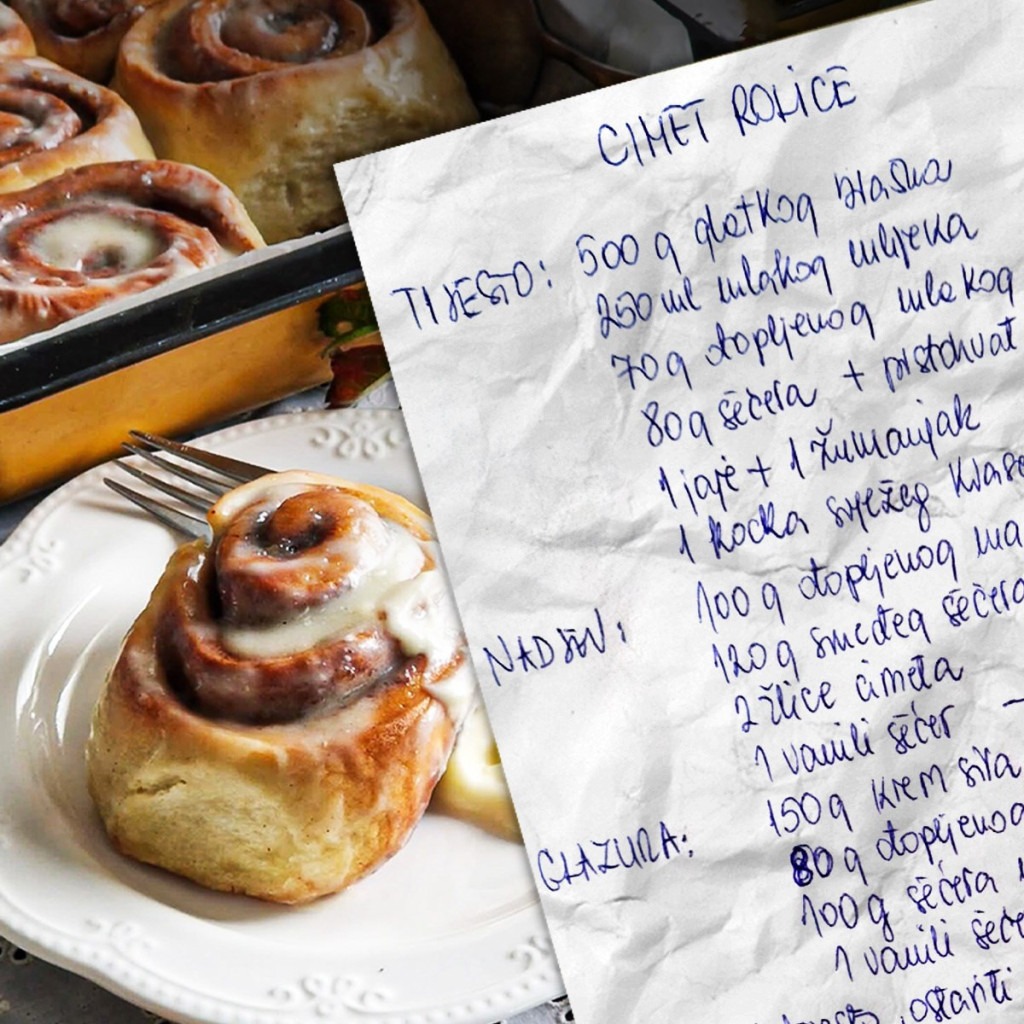 CIMET ROLICE
TIJESTO: 500 g glatkog brašna
250 ml mlakog mlijeka
70 g otopljenog mlakog
80 g šećera +
1 jaje + 1 žumanjak
1 kocka svježeg kvasc
100 g otopljenog ma
NADJEV:
120 g smeđeg šećera
2 žlice cimeta
1 vanili šećer –
150 g krem sira
GLAZURA: 80 g otopljenog
100 g šećera
1 vanili šeće
, ostaviti